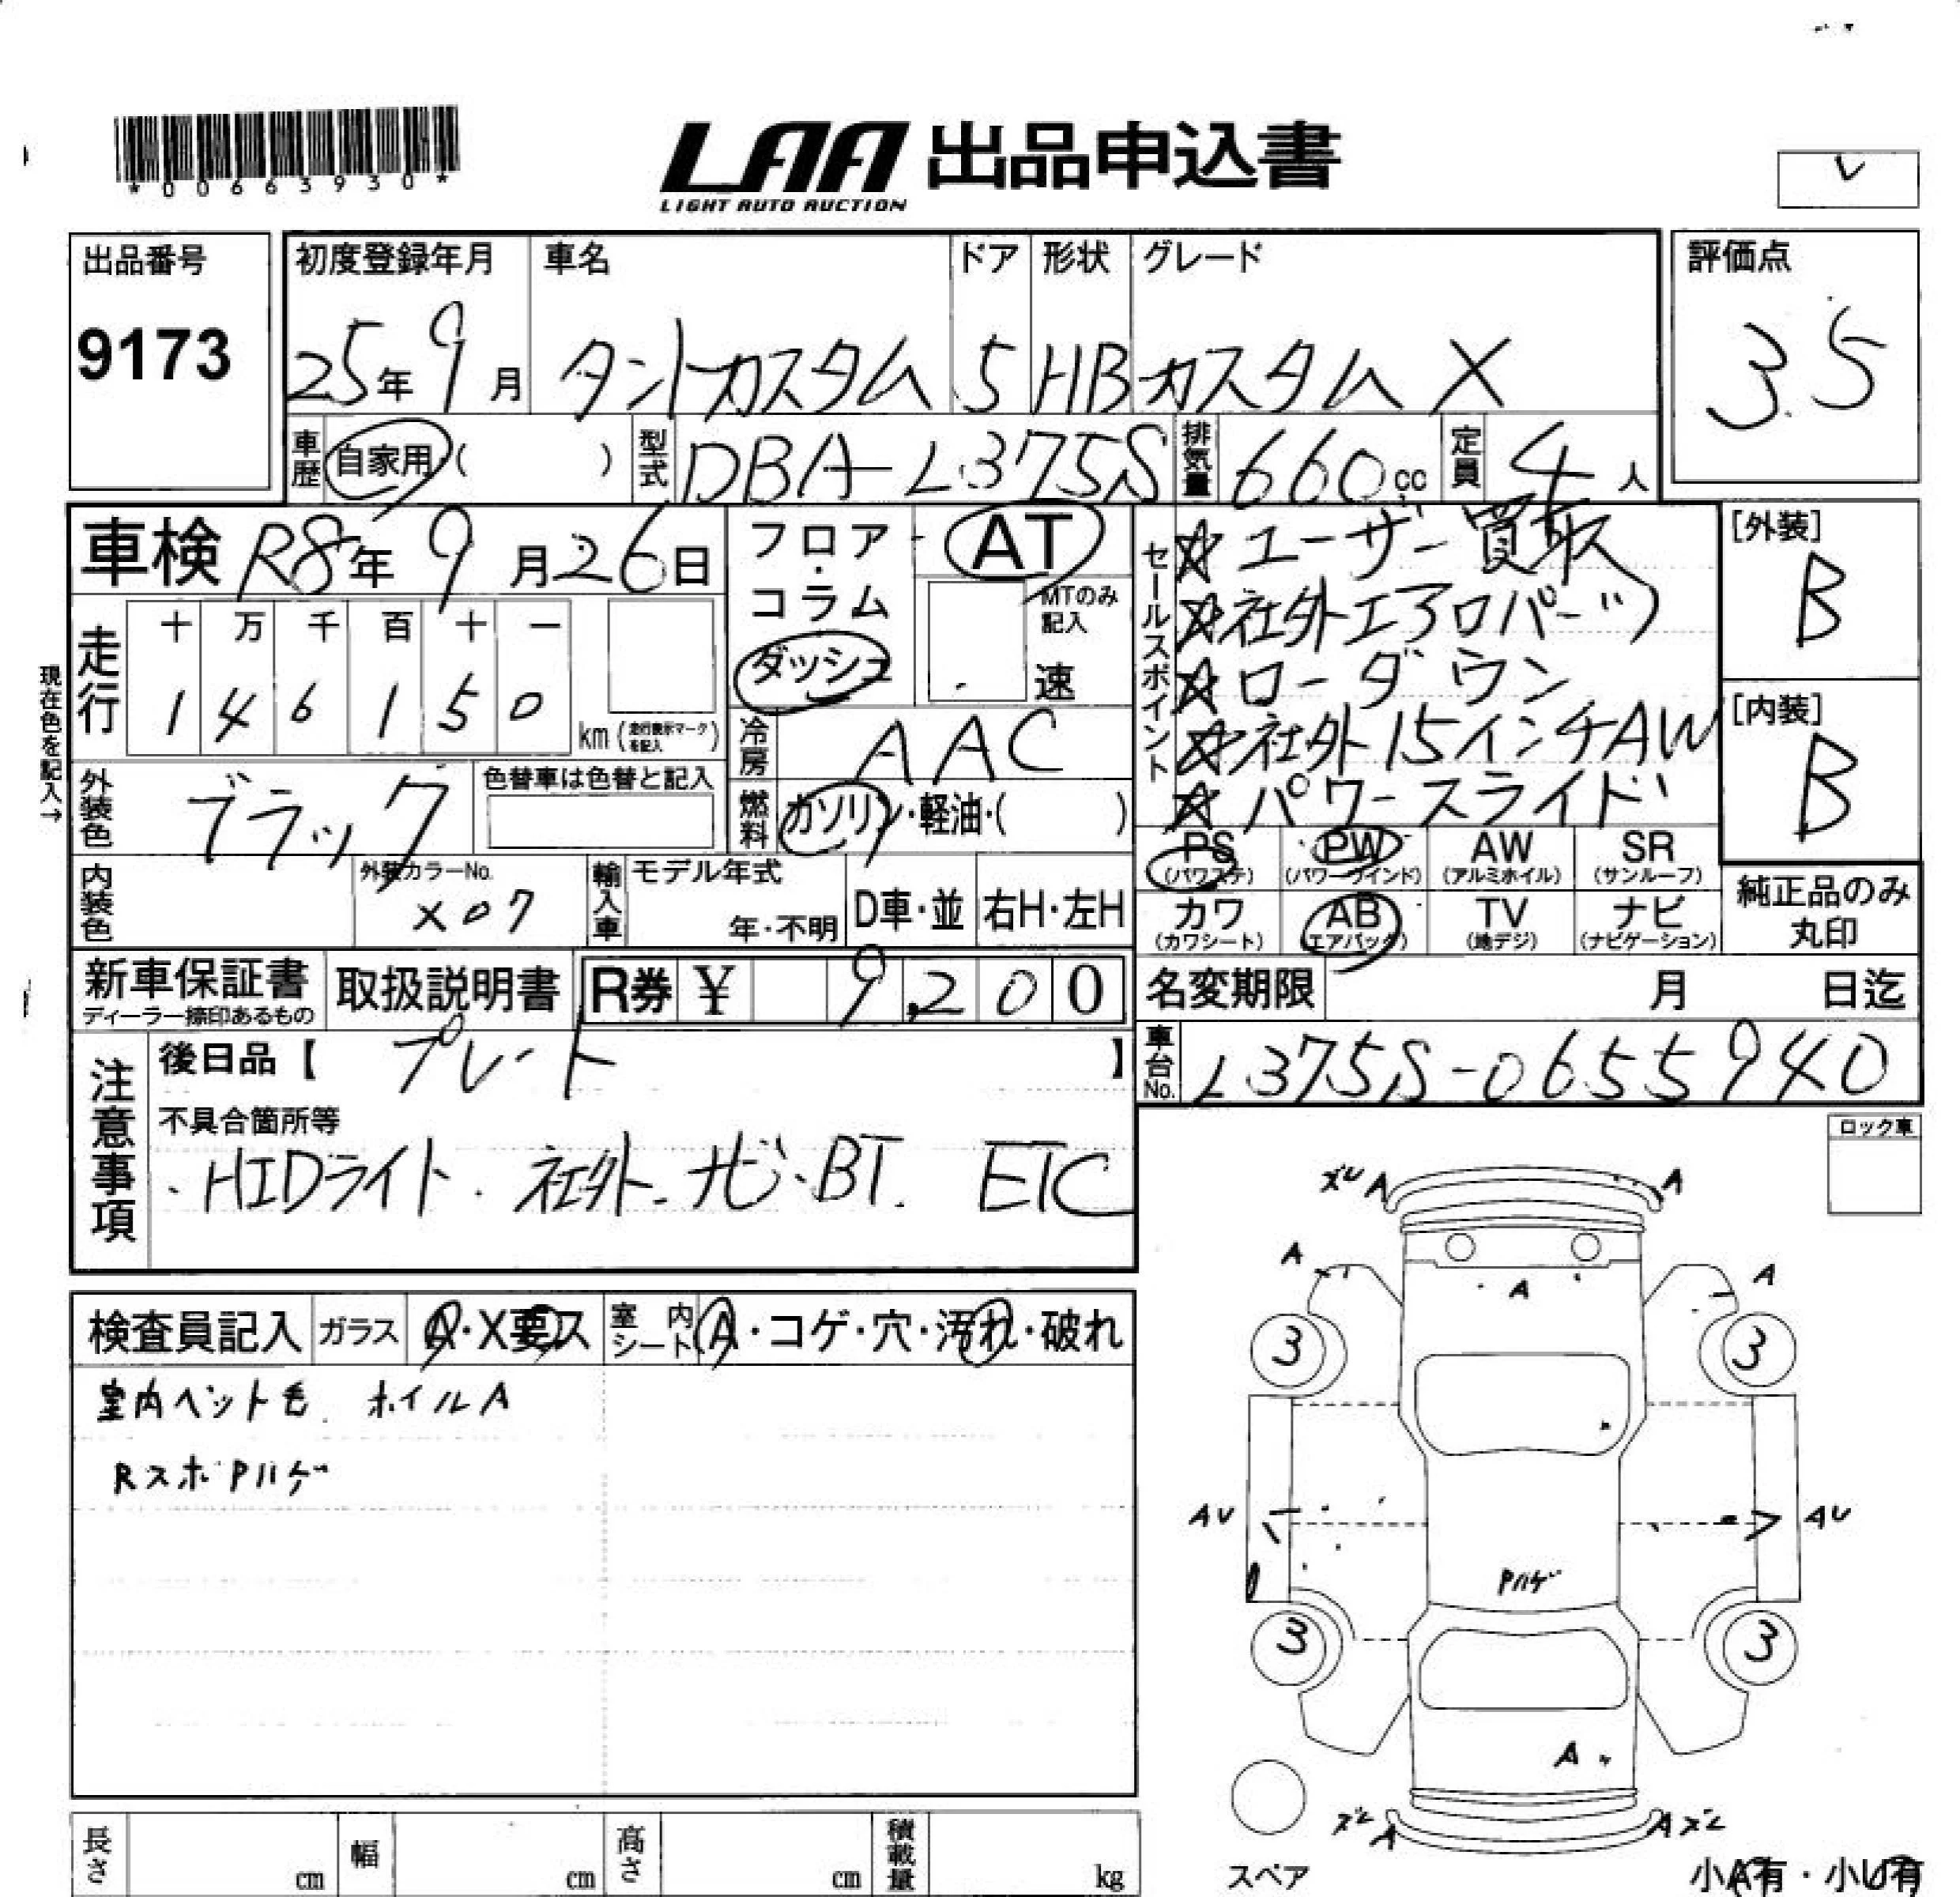 *00663930*
LAA 出品申込書
LIGHT AUTO AUCTION
レ
出品番号
9173
初度登録年月 車名 ドア 形状 グレード
25年9月 タントカスタム 5 HB カスタム X
評価点
3.5
車歴 自家用( ) 型式 DBA-L375S 排気量 660cc 定員 4人
車検 R8年9月26日
フロア・コラム
ダッシュ
AT
MTのみ記入
速
セールスポイント
☆ユーザー買取
☆社外エアロパーツ
☆ローダウン
☆社外15インチAW
☆パワースライド
[外装]
B
[内装]
B
現在色を記入→
走行 十 万 千 百 十 一
1 4 6 1 5 0 km(走行表示マークを記入)
冷房 AAC
外装色 ブラック 色替車は色替と記入
燃料 ガソリン・軽油・( )
内装色 外装カラーNo. X07
輸入車 モデル年式 年・不明 D車・並 右H・左H
PS(パワステ) PW(パワーウインド) AW(アルミホイル) SR(サンルーフ)
カワ(カワシート) AB(エアバッグ) TV(地デジ) ナビ(ナビゲーション)
純正品のみ丸印
新車保証書 取扱説明書 R券 ¥ 9,200
ディーラー捺印あるもの
名変期限 月 日迄
車台No. L375S-0655940
注意事項
後日品【 プレート 】
不具合箇所等
・HIDライト・社外ナビ・BT. ETC
ロック車
検査員記入 ガラス A・X要ス 室内シート A・コゲ・穴・汚れ・破れ
室内ペット毛. ホイルA
RスポPハゲ
ズレ A A
A A
A
3 3
AU AU
Pハゲ
3 3
A
ズレ A A ズレ
スペア
小A有・小U有
長さ cm 幅 cm 高さ cm 積載量 kg